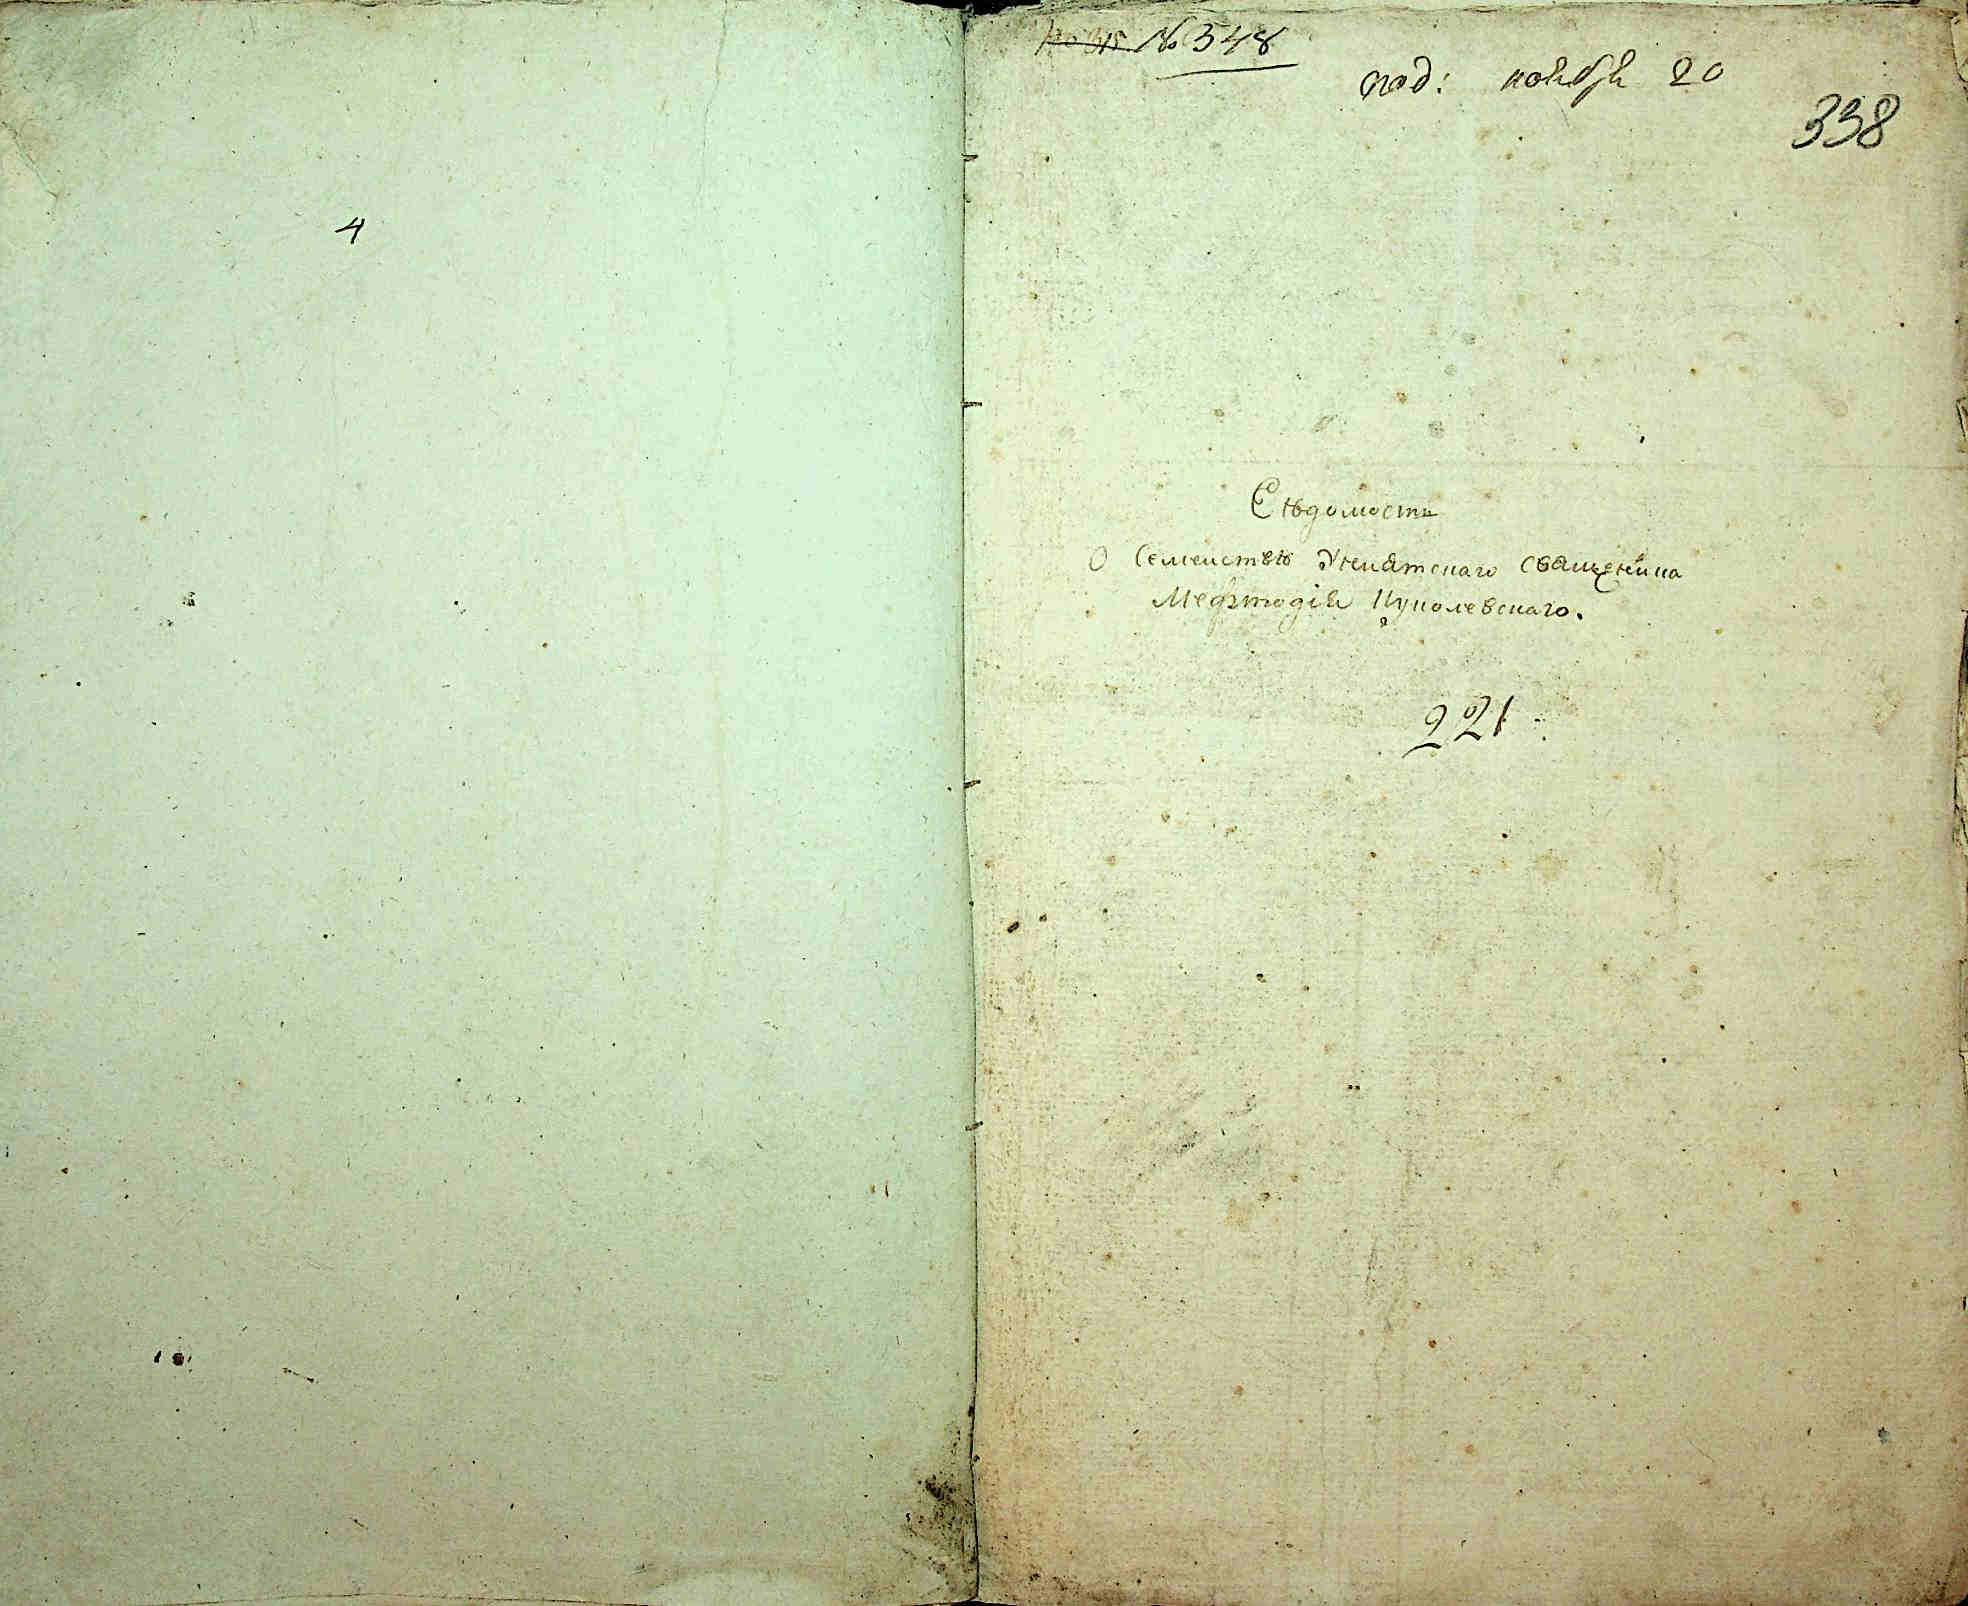 4
№ 348
под: ноября 20
338
Вѣдомость
О Семеиствѣ Униатскаго Священника
Мефтодія Куполевскаго.
221